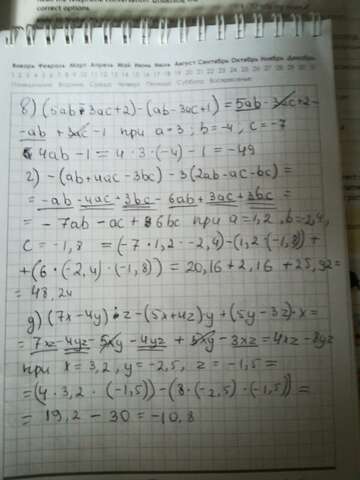 correct options.
Январь Февраль Март Апрель Май Июнь Июль Август Сентябрь Октябрь Ноябрь Декабрь
Понедельник Вторник Среда Четверг Пятница Суббота Воскресенье
в) (5ab - 3ac + 2) - (ab - 3ac + 1) = 5ab - 3ac + 2 -
- ab + 3ac - 1 при a = 3; b = -4, c = -7
4ab - 1 = 4 · 3 · (-4) - 1 = -49
г) -(ab + 4ac - 3bc) - 3(2ab - ac - bc) =
= -ab - 4ac + 3bc - 6ab + 3ac + 3bc =
= - 7ab - ac + 6bc при a = 1,2, b = -2,4,
c = -1,8 = (-7 · 1,2 · -2,4) - (1,2 · (-1,8)) +
+ (6 · (-2,4) · (-1,8)) = 20,16 + 2,16 + 25,92 =
= 48,24
д) (7x - 4y) · z - (5x + 4z) y + (5y - 3z) · x =
= 7xz - 4yz - 5xy - 4yz + 5xy - 3xz = 4xz - 8yz
при x = 3,2, y = -2,5, z = -1,5 =
= (4 · 3,2 · (-1,5)) - (8 · (-2,5) · (-1,5)) =
= 19,2 - 30 = -10,8